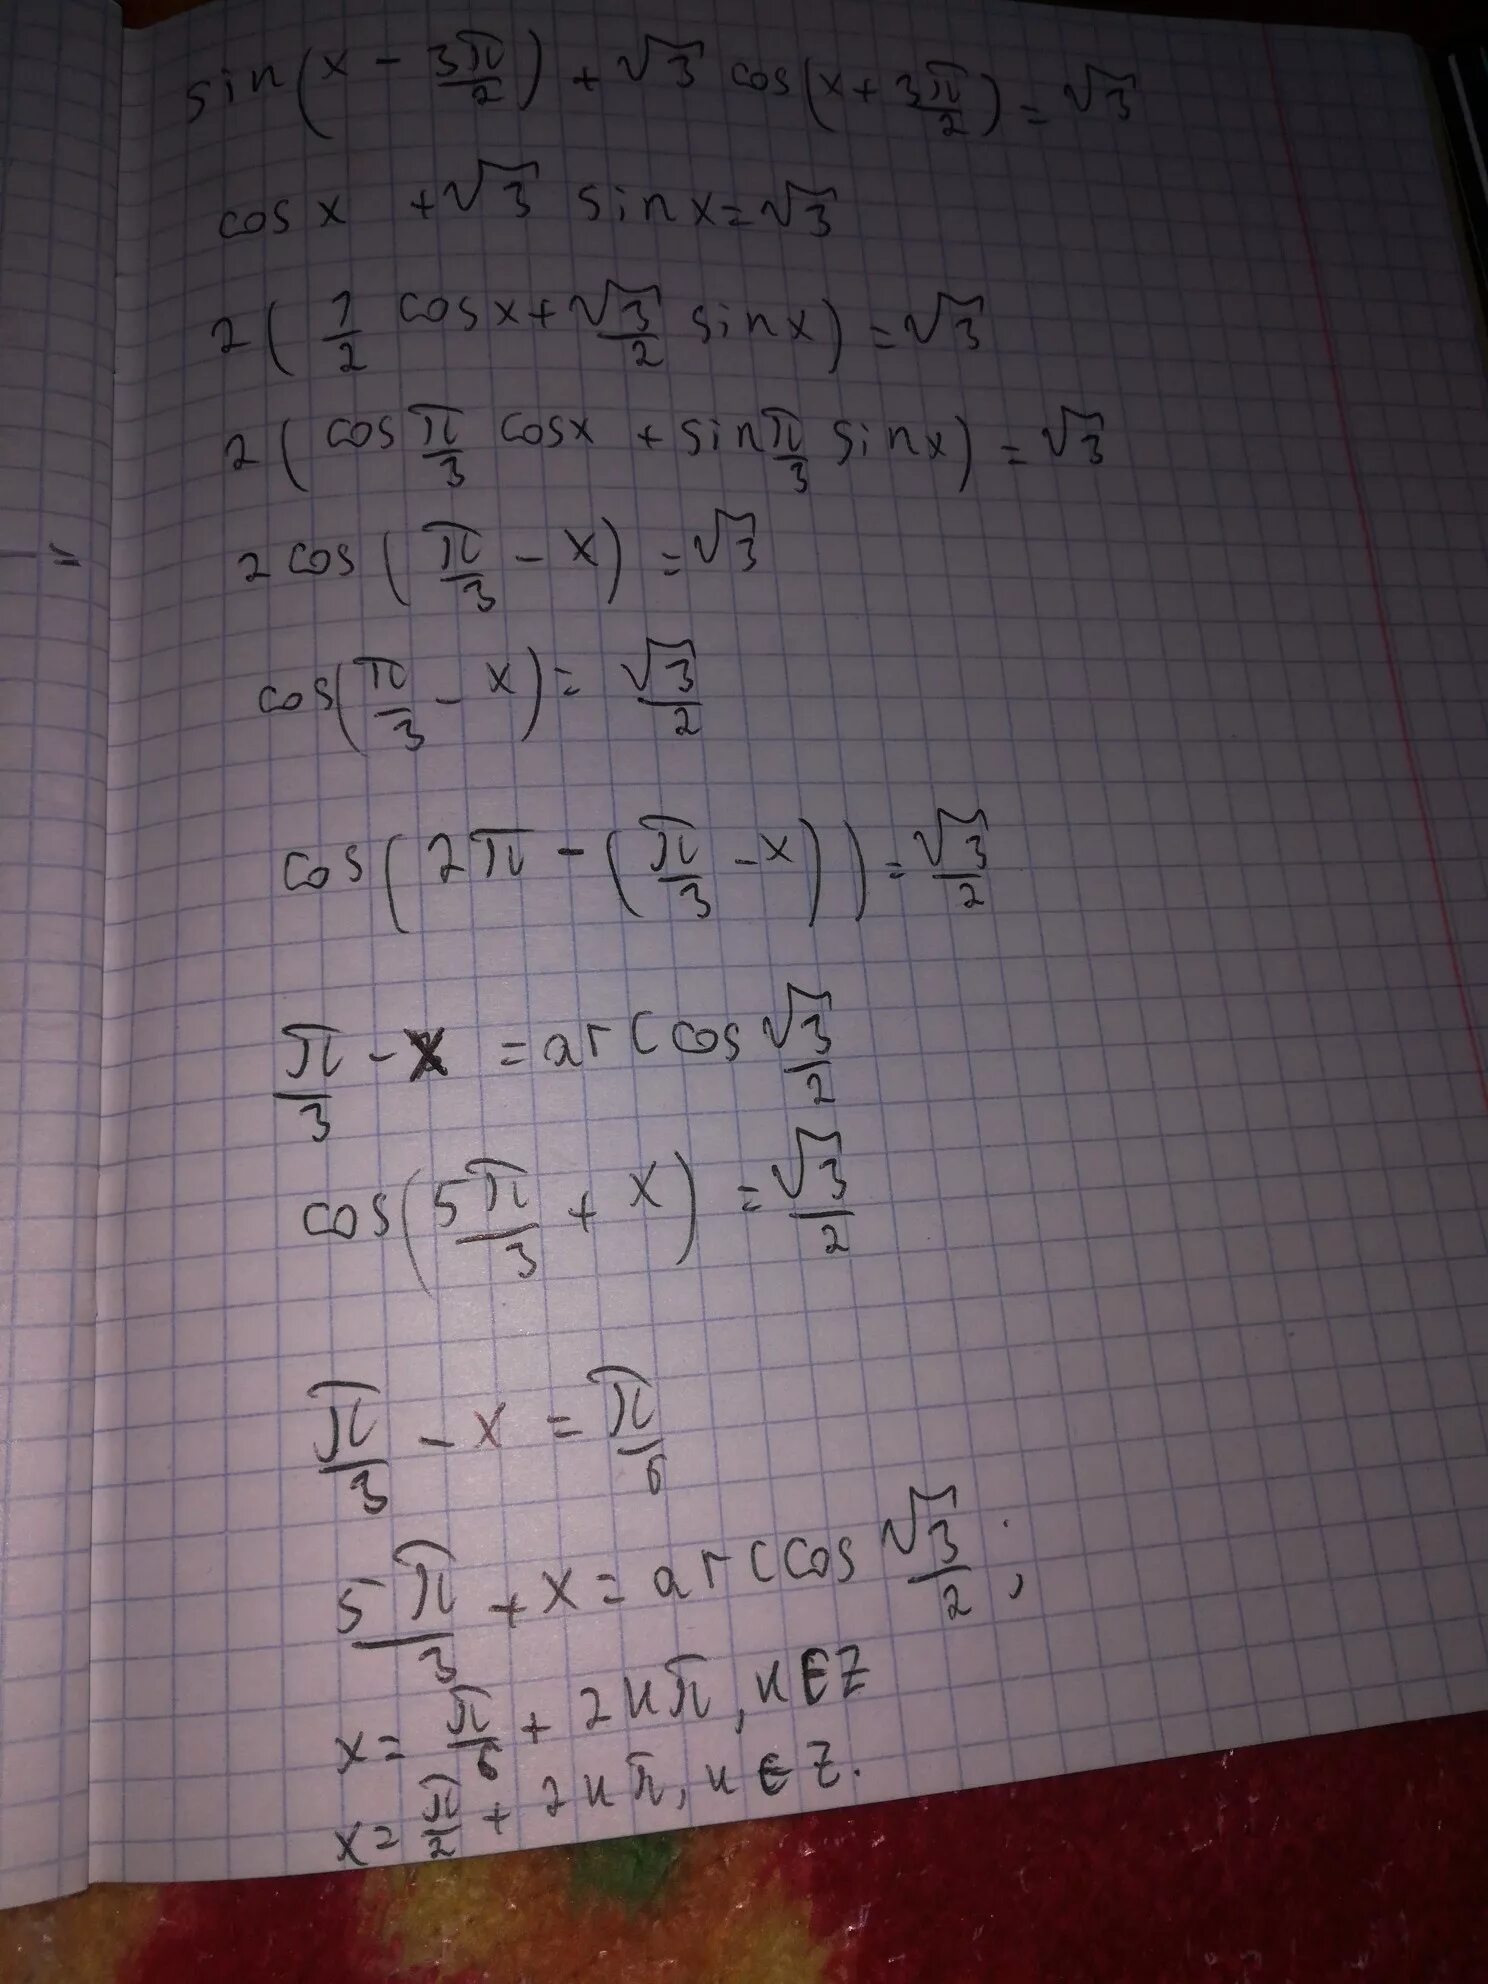 sin(x - 3π/2) + √3 cos(x + 3π/2) = √3
cosx + √3 sinx = √3
2(1/2 cosx + √3/2 sinx) = √3
2(cos π/3 cosx + sin π/3 sinx) = √3
2cos(π/3 - x) = √3
cos(π/3 - x) = √3/2
cos(2π - (π/3 - x)) = √3/2
π/3 - x = arccos √3/2
cos(5π/3 + x) = √3/2
π/3 - x = π/6
5π/3 + x = arccos √3/2;
x = π/6 + 2kπ, k∈Z
x = π/2 + 2kπ, k∈Z.